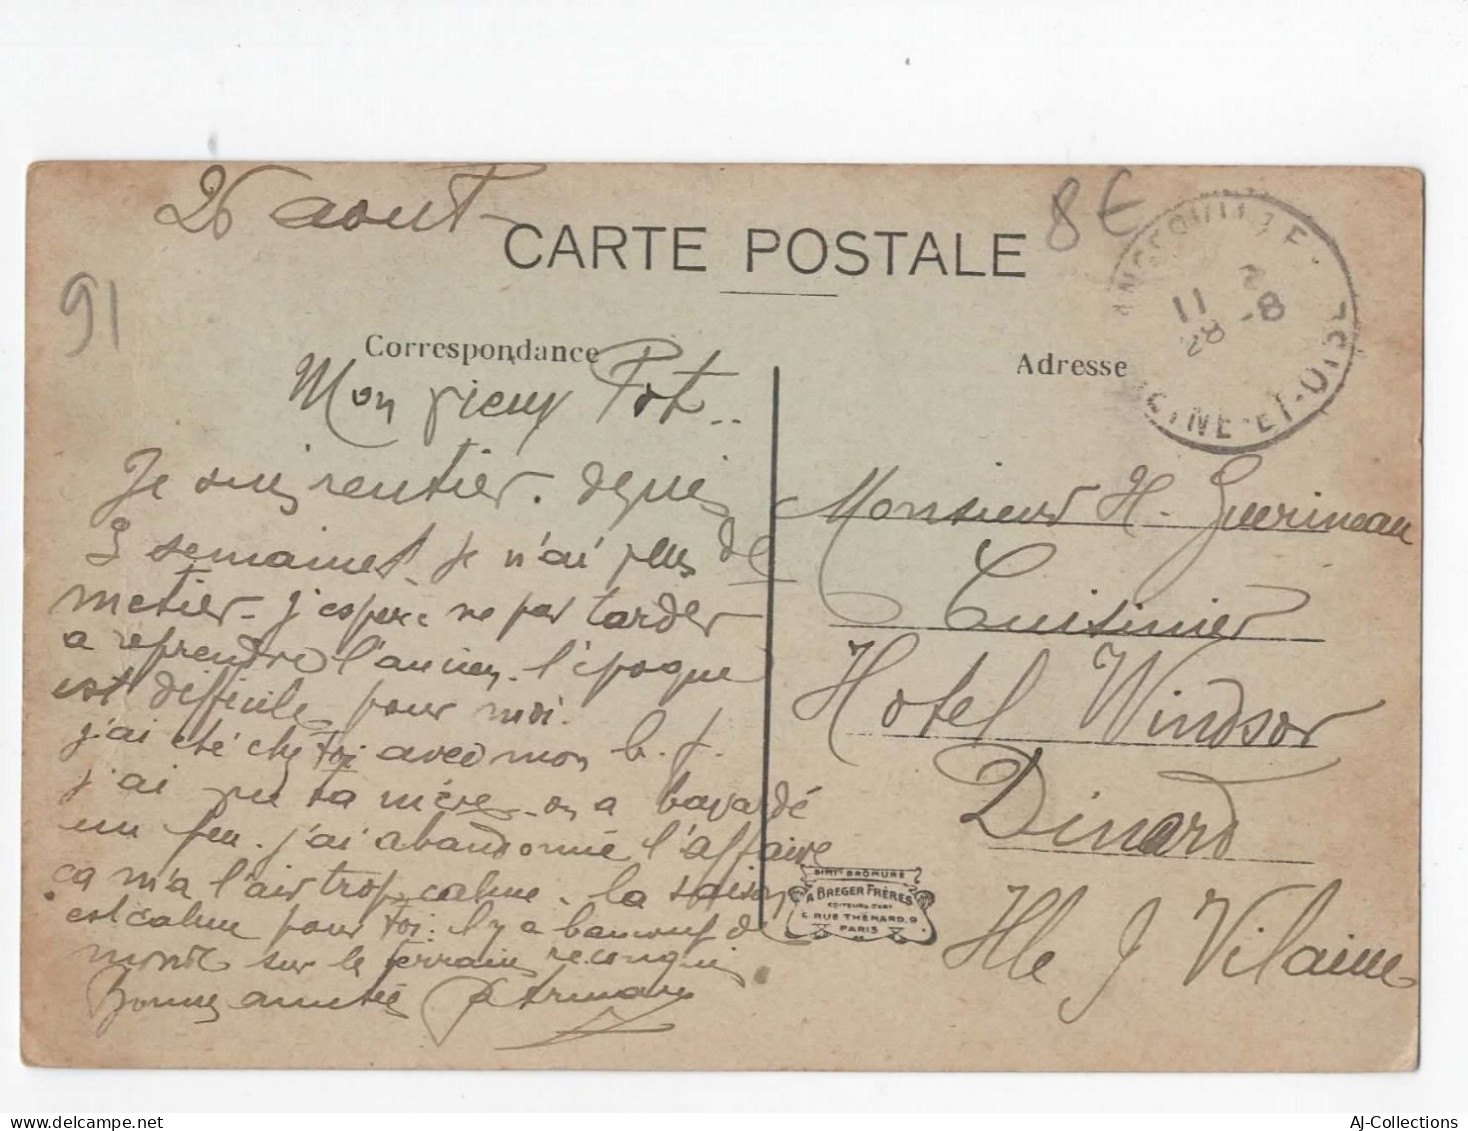 26 aout
8€
CARTE POSTALE
91
Correspondance
Adresse
ANGERVILLE
11 2
28 -8
SEINE-ET-OISE
Mon vieux Pot..
Je suis rentier. depuis
3 semaines. je n'ai plus de
metier. j'espere ne pas tarder
a reprendre l'ancien. l'époque
est difficile pour moi.
j'ai été chez toi avec mon b. f.
j'ai vu ta mère. on a bavardé
un peu. j'ai abandonné l'affaire
ça m'a l'air trop calme. la saison
est calme pour toi. il y a beaucoup de
monde sur le terrain reconquis
Bonne amitié
Monsieur H. Guerineau
Cuisinier
Hotel Windsor
Dinard
Ille & Vilaine
SIMI-BROMURE
A BREGER FRÈRES
EDITEURS D'ART
9 RUE THÉNARD. 9
PARIS
AJ-Collections